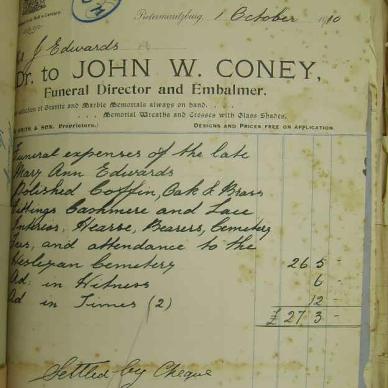 Pietermaritzburg, 1 October 1910
J Edwards
Dr. to JOHN W. CONEY,
Funeral Director and Embalmer.
selection of Granite and Marble Memorials always on hand. . . .
. . . Memorial Wreaths and Crosses with Glass Shades.
& SON, Proprietors. DESIGNS AND PRICES FREE ON APPLICATION.
Funeral expenses of the late
Mary Ann Edwards
Polished Coffin, Oak & Brass
Fittings Cashmere and Lace
Hearse, Bearers, Cemetery
Fees, and attendance to the
Wesleyan Cemetery 26 5 -
Ad: in Witness 6 -
Ad in Times (2) 12 -
£ 27 3 -
Settled by Cheque